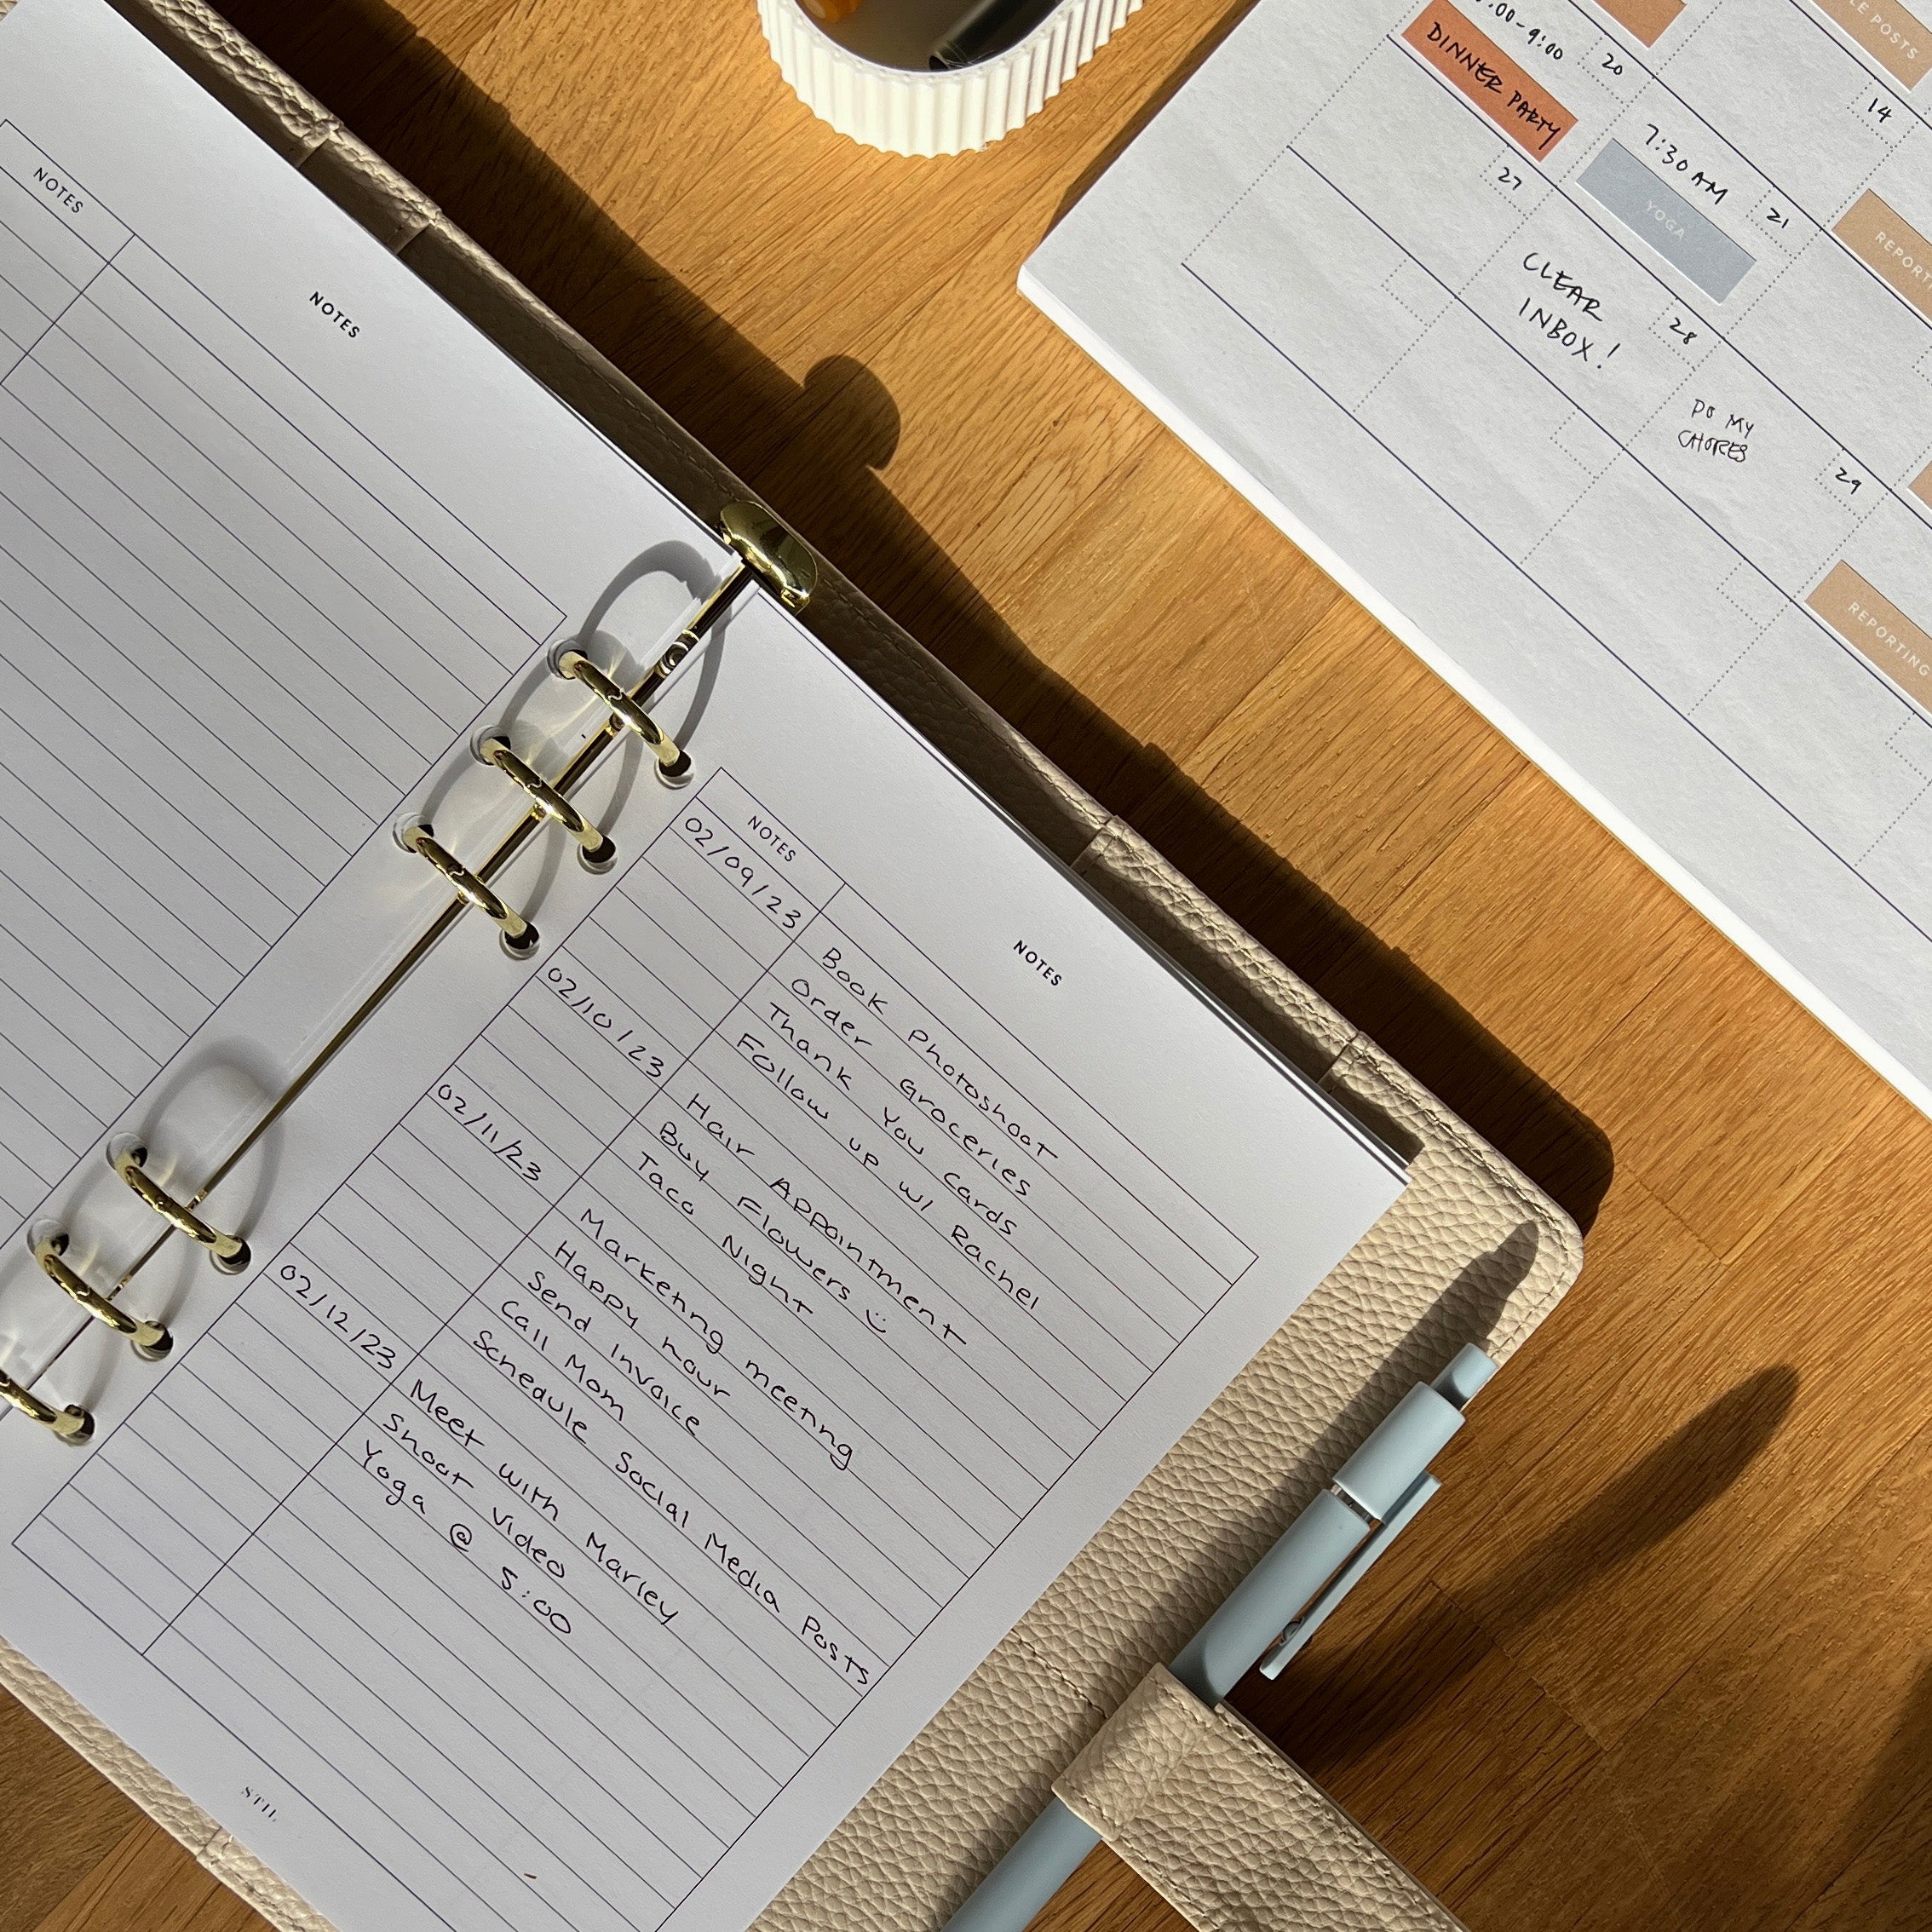 NOTES
NOTES
NOTES
NOTES
02/09/23
Book Photoshoot
Order Groceries
Thank You Cards
Follow up w/ Rachel
02/10/23
Hair Appointment
Buy Flowers :)
Taco Night
02/11/23
Marketing meeting
Happy hour
Send Invoice
Call Mom
Schedule Social Media Posts
02/12/23
Meet with Marley
Shoot Video
Yoga @ 5:00
STIL
:00-9:00
DINNER PARTY
20
7:30 AM
YOGA
14
LE POSTS
21
REPORT
27
CLEAR
INBOX!
28
DO MY
CHORES
29
REPORTING